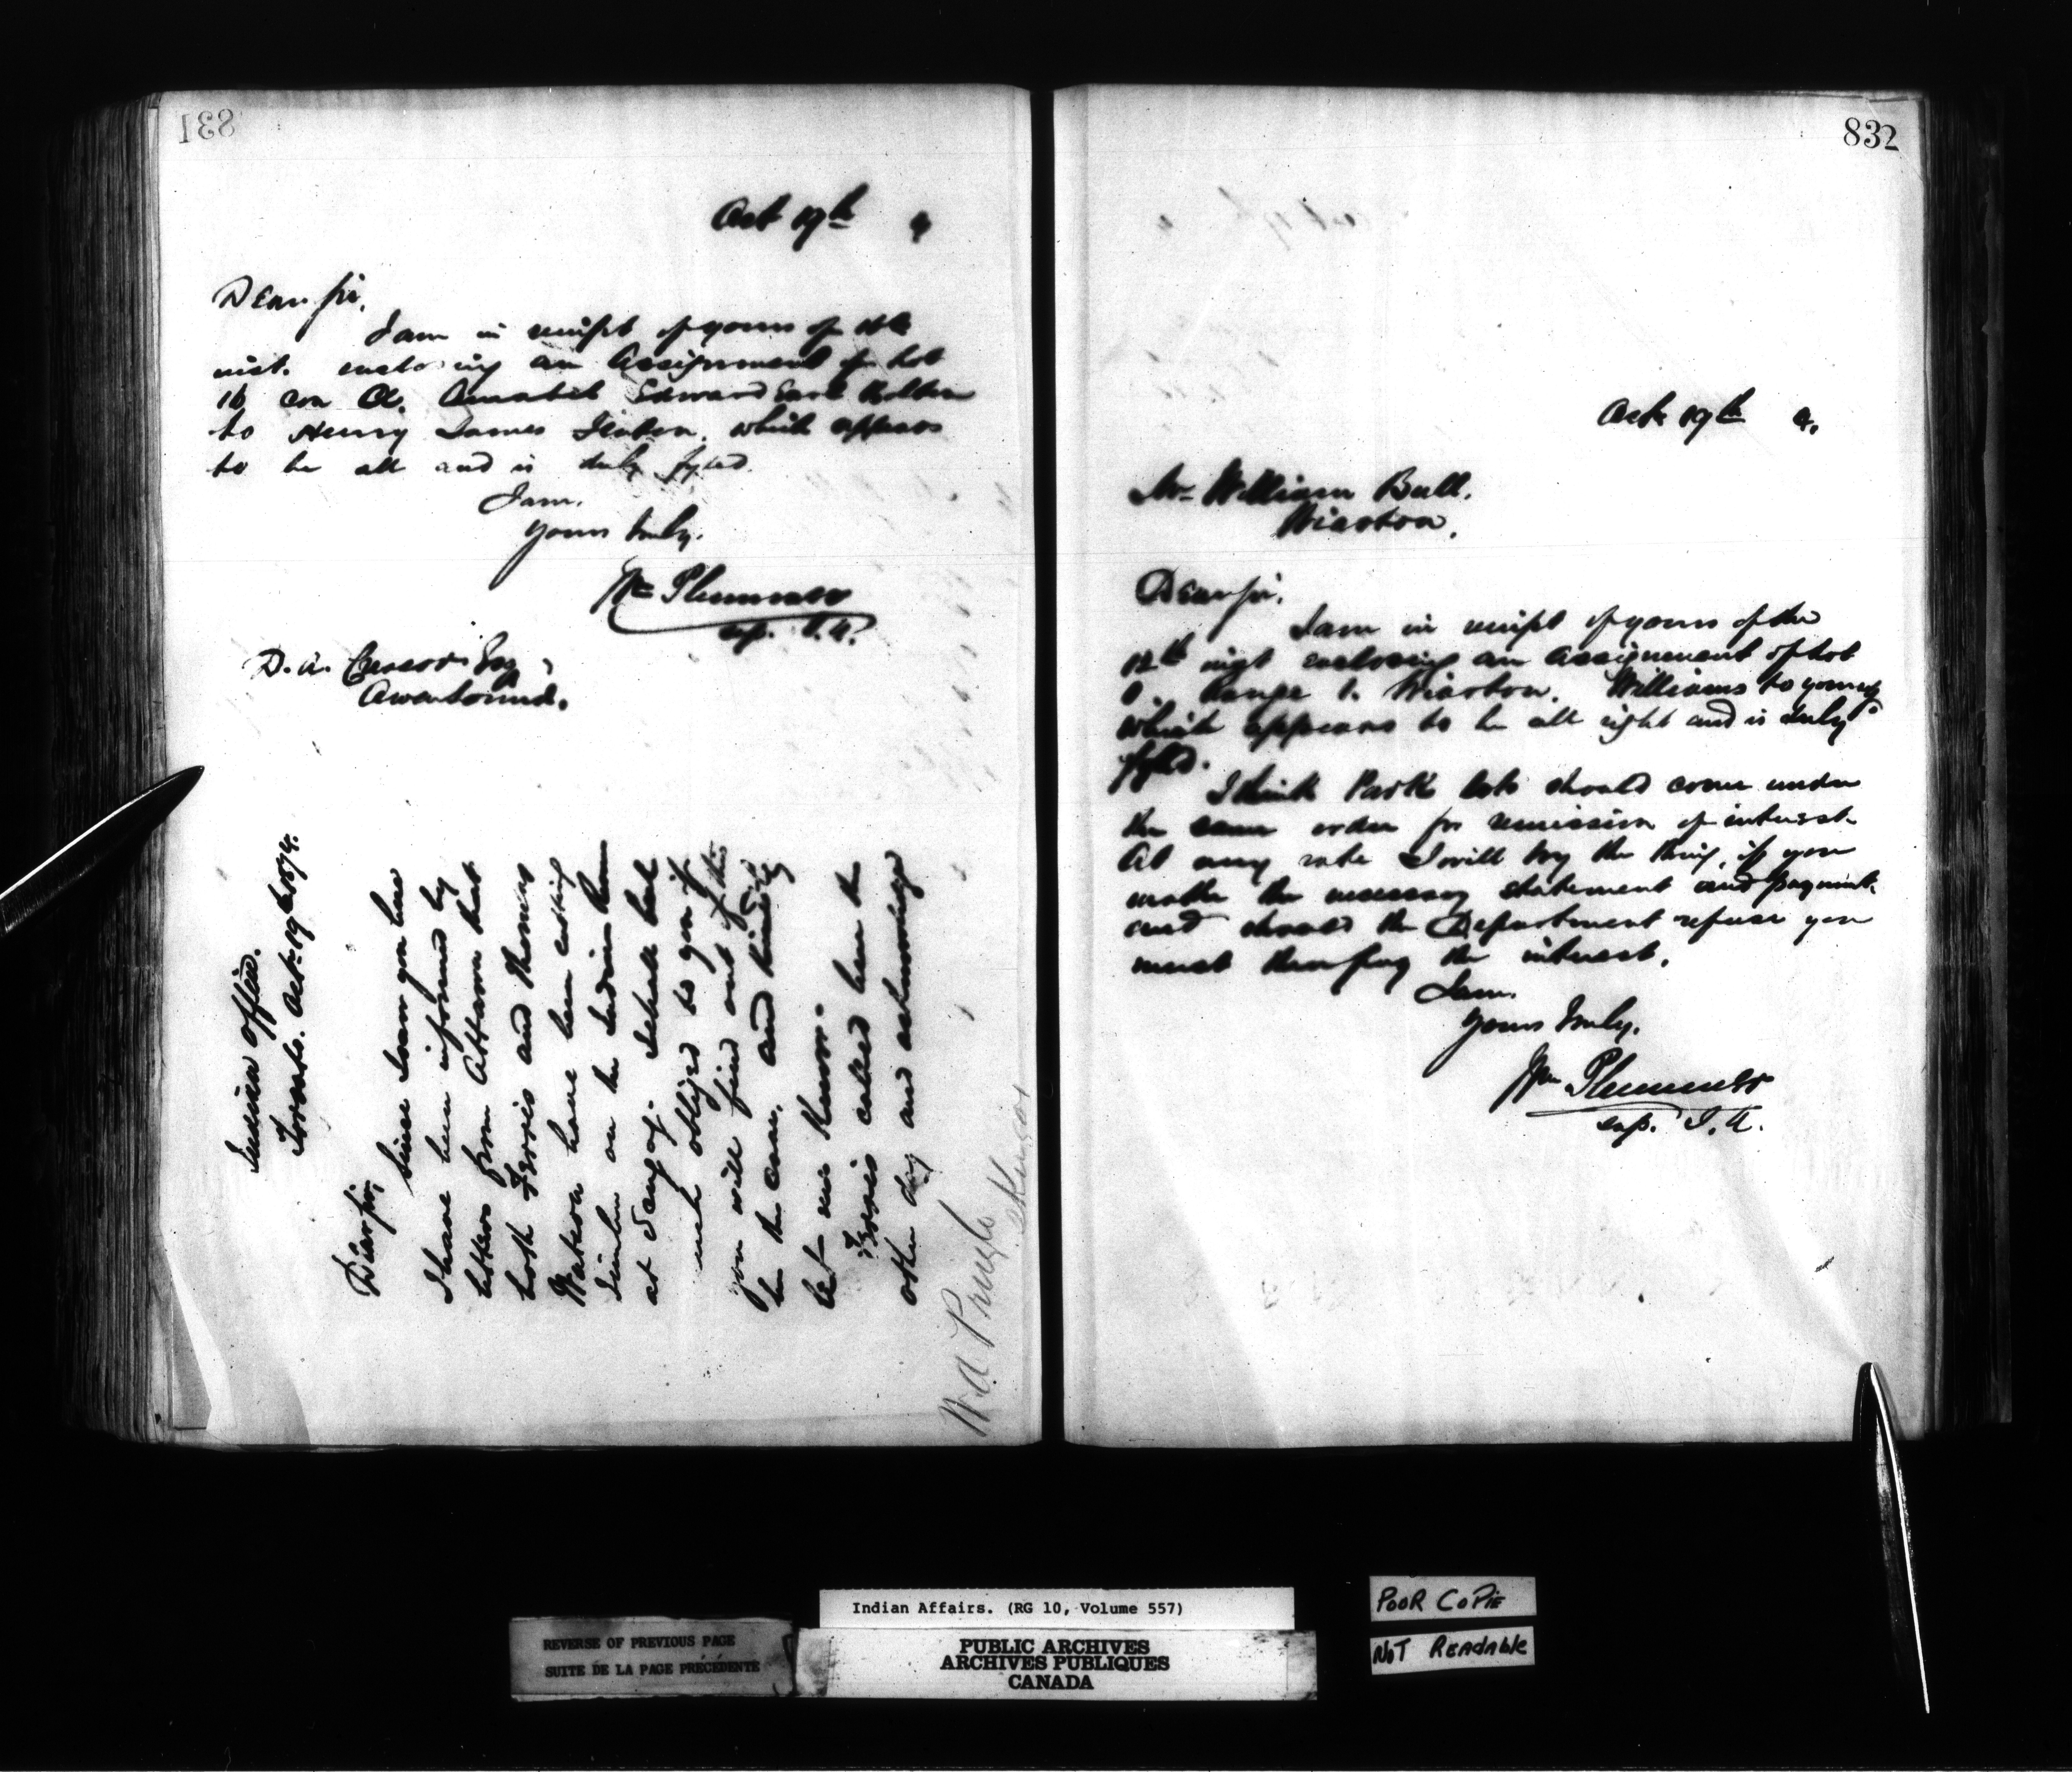 831
Oct 19th 4
Dear Sir,
I am in receipt of yours of 16th
inst. enclosing an Assignment of Lot
16 con A. Amabel Edward Earl
to Henry James which appears
to be all and is duly fyled.
I am,
Yours truly,
Wm Plummer
sup. I.A.
D. A. Esq,
Owen Sound.
Indian Office.
Toronto. Oct. 19th 1874.
Dear Sir,
Since I saw you here
I have been informed by
letters from Ottawa that
both Ferris and Thomas
Watson have been cutting
timber on the Indian Reserve
at Saugog. I shall feel
much obliged to you if
you will find out if this
be the case, and kindly
let me know.
Ferris called here the
other day and acknowledged
W. A. Pringle
832
Oct 19th 4.
Mr William Bull.
Wiarton.
Dear Sir,
I am in receipt of yours of the
12th inst enclosing an assignment of Lot
Range 1. Wiarton. Williams to Young
which appears to be all right and is duly
fyled.
I think Park lots should come under
the same order for remission of interest
At any rate I will try the thing, if you
make the necessary statement and payment
and should the Department refuse you
must then pay the interest.
I am,
Yours truly,
Wm Plummer
sup. I.A.
Indian Affairs. (RG 10, Volume 557)
REVERSE OF PREVIOUS PAGE
SUITE DE LA PAGE PRÉCÉDENTE
PUBLIC ARCHIVES
ARCHIVES PUBLIQUES
CANADA
POOR COPIE
NOT READABLE